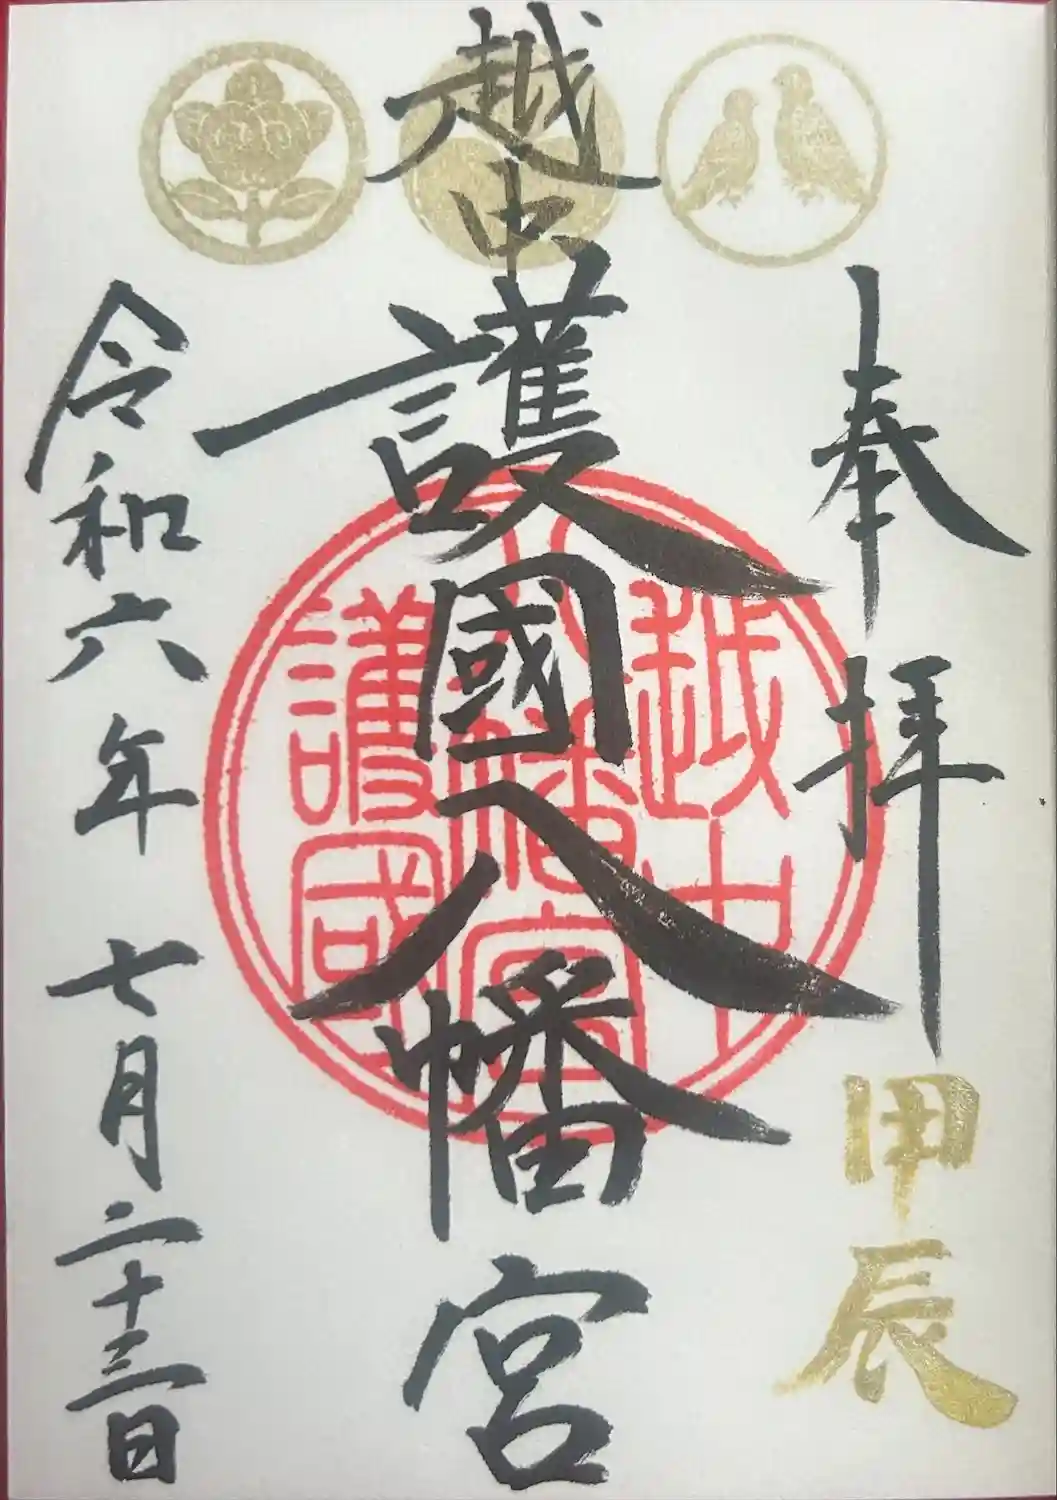 奉拝
甲辰
越中
護國八幡宮
越中
八幡宮
護國
令和六年 七月二十三日